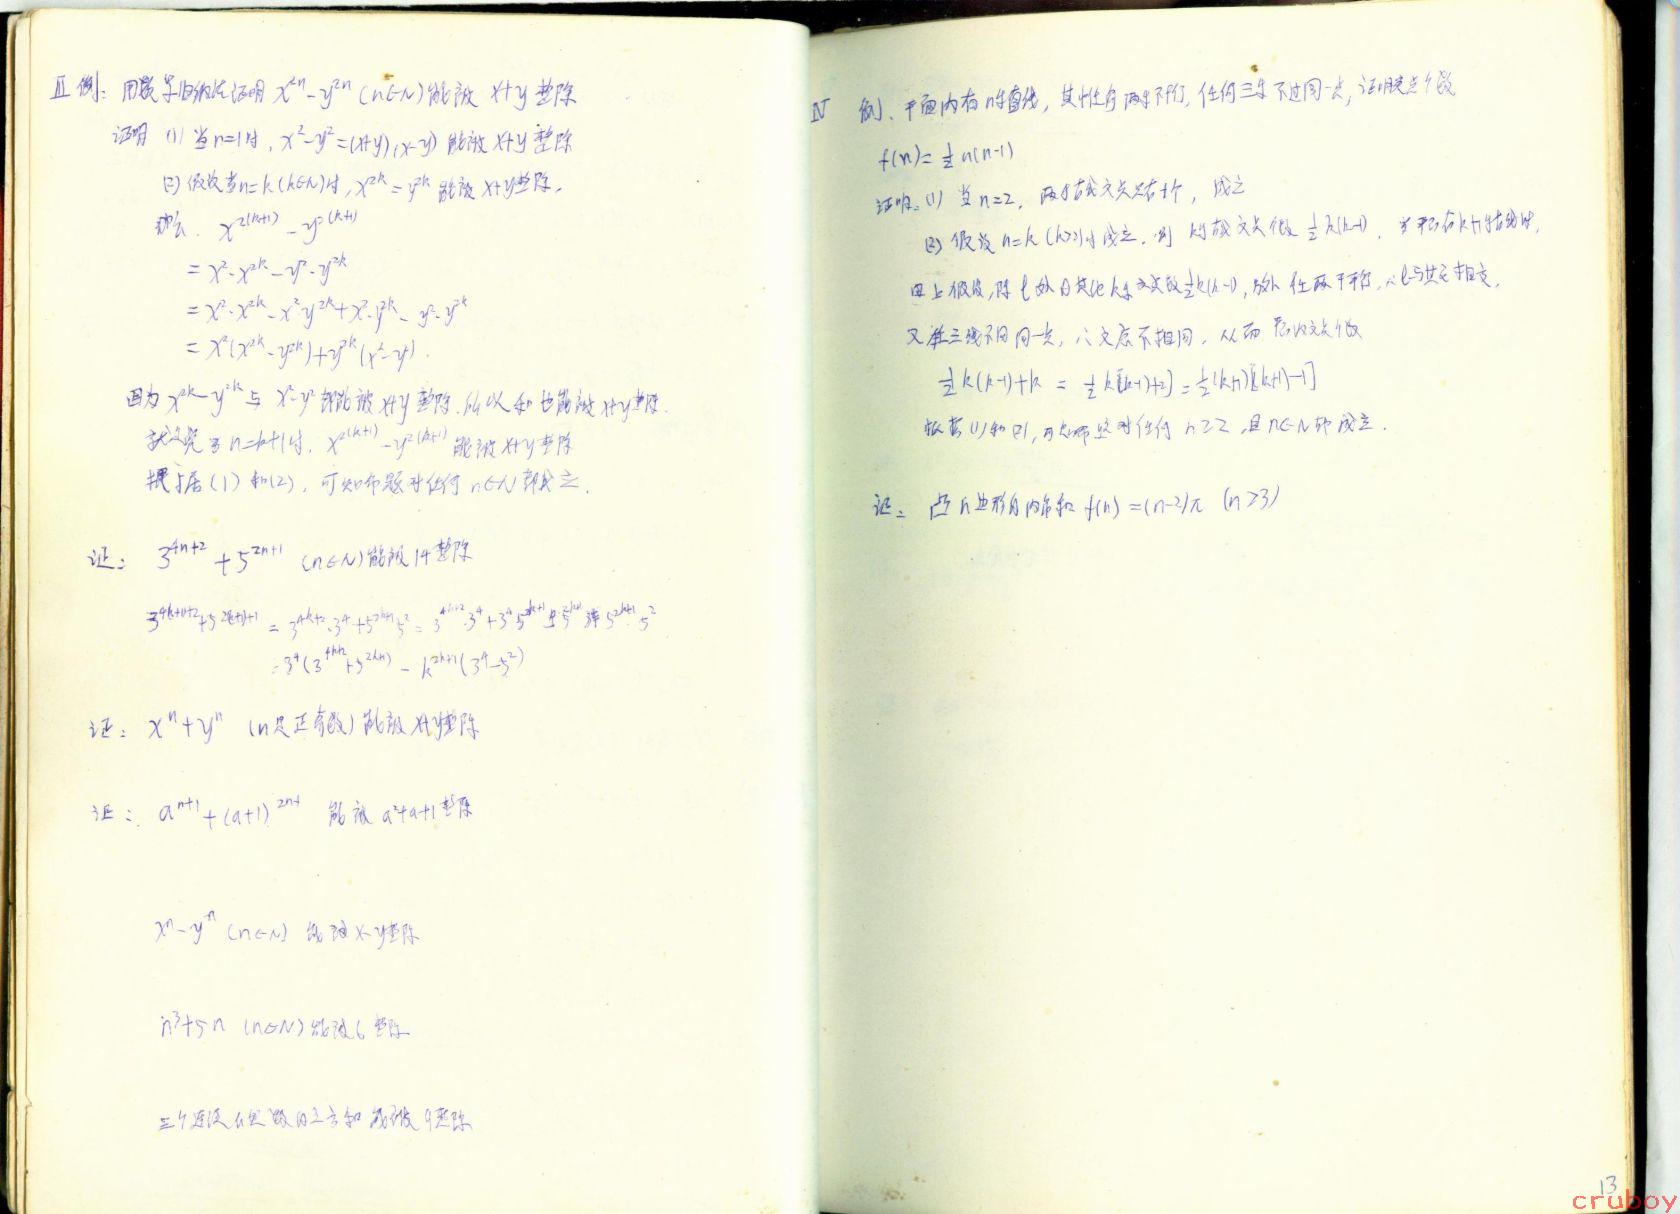 Ⅲ 例: 用数学归纳法证明 x²ⁿ-y²ⁿ (n∈N)能被 x+y 整除
证明 (1) 当n=1时, x²-y²=(x+y)(x-y) 能被 x+y 整除
(2) 假设当n=k(k∈N)时, x^{2k}-y^{2k} 能被 x+y整除,
那么. x^{2(k+1)} - y^{2(k+1)}
= x²·x^{2k} - y²·y^{2k}
= x²·x^{2k} - x²·y^{2k} + x²·y^{2k} - y²·y^{2k}
= x²(x^{2k}-y^{2k}) + y^{2k}(x²-y²).
因为 x^{2k}-y^{2k} 与 x²-y² 都能被 x+y 整除.所以和也能被 x+y整除.
就是说当n=k+1时, x^{2(k+1)}-y^{2(k+1)} 能被 x+y 整除
根据(1)和(2), 可知命题对任何 n∈N 都成立.
证: 3^{4n+2} + 5^{2n+1} (n∈N)能被14整除
3^{4(k+1)+2}+5^{2(k+1)+1} = 3^{4k+2}·3^4+5^{2k+1}5^2 = 3^{4k+2}·3^4+3^4 5^{2k+1} 5^{2k+1} 5^{2k+1}·5^2
=3^4(3^{4k+2}+5^{2k+1}) - k^{2k+1}(3^4-5^2)
证: xⁿ+yⁿ (n是正奇数)能被 x+y整除
证: a^{n+1}+(a+1)^{2n-1} 能被 a²+a+1整除
xⁿ-yⁿ (n∈N) 能被 x-y整除
n³+5n (n∈N)能被6整除
三个连续自然数的立方和能被9整除
Ⅳ 例. 平面内有n条直线, 其中任何两条不平行, 任何三条不过同一点, 证明交点个数
f(n)=½n(n-1)
证明: (1) 当n=2, 两条直线交点只有1个, 成立
(2) 假设 n=k (k≥2)时成立. 则 k条直线交点个数 ½k(k-1). 当平面有k+1条直线时,
由上假设,除 l 外的其他k条交点数½k(k-1), 任两不平行, ∴l与其它相交,
又任三线不同一点, ∴交点不相同, 从而 交点个数
½k(k-1)+k = ½k[(k-1)+2] = ½(k+1)[(k+1)-1]
根据(1)和(2), 可知命题对任何 n≥2, 且n∈N都成立.
证: 凸n边形的内角和 f(n)=(n-2)π (n≥3)
13
cruboy